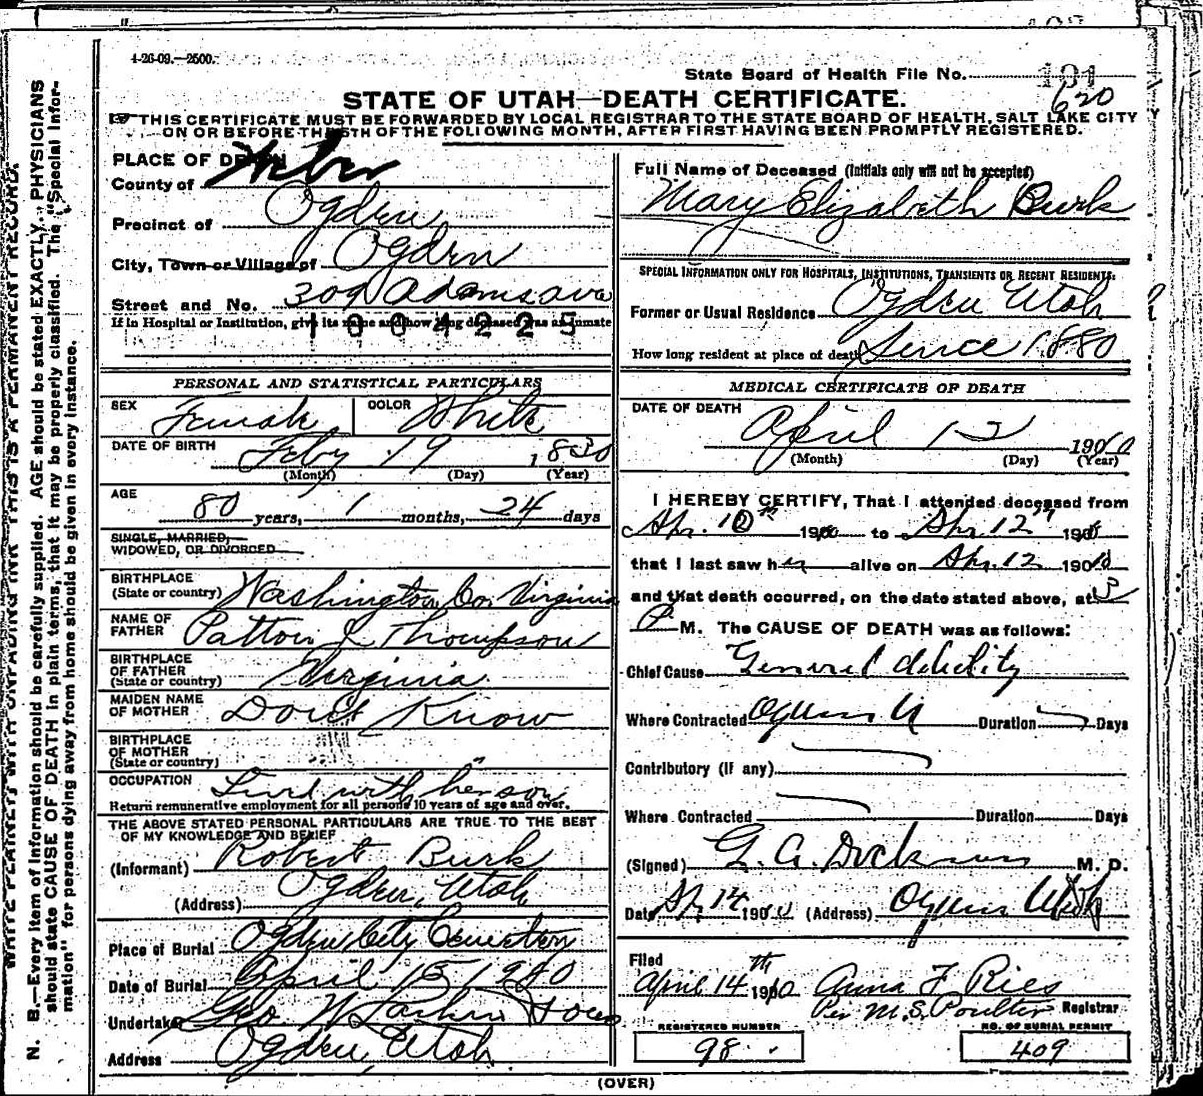 4-26-09.—2500.
State Board of Health File No. 101
620
STATE OF UTAH—DEATH CERTIFICATE.
THIS CERTIFICATE MUST BE FORWARDED BY LOCAL REGISTRAR TO THE STATE BOARD OF HEALTH, SALT LAKE CITY
ON OR BEFORE THE 5TH OF THE FOLLOWING MONTH, AFTER FIRST HAVING BEEN PROMPTLY REGISTERED.
PLACE OF DEATH
County of Weber
Precinct of Ogden
City, Town or Village of Ogden
Street and No. 309 Adams ave
If in Hospital or Institution, give its name and how long deceased was an inmate
1004225
Full Name of Deceased (Initials only will not be accepted)
Mary Elizabeth Burk
SPECIAL INFORMATION ONLY FOR HOSPITALS, INSTITUTIONS, TRANSIENTS OR RECENT RESIDENTS.
Former or Usual Residence Ogden Utah
How long resident at place of death Since 1880
PERSONAL AND STATISTICAL PARTICULARS
SEX Female COLOR White
DATE OF BIRTH Feby 19 1830
(Month) (Day) (Year)
AGE
80 years, 1 months, 24 days
SINGLE, MARRIED,
WIDOWED, OR DIVORCED
BIRTHPLACE
(State or country) Washington Co. Virginia
NAME OF
FATHER Patton Thompson
BIRTHPLACE
OF FATHER
(State or country) Virginia
MAIDEN NAME
OF MOTHER Dont Know
BIRTHPLACE
OF MOTHER
(State or country)
OCCUPATION Lived with her son
Return remunerative employment for all persons 10 years of age and over.
THE ABOVE STATED PERSONAL PARTICULARS ARE TRUE TO THE BEST
OF MY KNOWLEDGE AND BELIEF
(Informant) Robert Burk
(Address) Ogden, Utah
Place of Burial Ogden City Cemetery
Date of Burial April 15 1910
Undertaker Geo. W. Larkin & Sons
Address Ogden, Utah
MEDICAL CERTIFICATE OF DEATH
DATE OF DEATH
April 12 1910
(Month) (Day) (Year)
I HEREBY CERTIFY, That I attended deceased from
Apr. 10th 1910 to Apr. 12th 1910
that I last saw her alive on Apr. 12 1910
and that death occurred, on the date stated above, at 3
P M. The CAUSE OF DEATH was as follows:
Chief Cause General debility
Where Contracted Ogden U Duration Days
Contributory (if any)
Where Contracted Duration Days
(Signed) G. A. Dickson M. D.
Date Ap. 14 1910 (Address) Ogden Utah
Filed
April 14th 1910 Anna F Ries
Per M. S. Poulter Registrar
REGISTERED NUMBER
98
NO. OF BURIAL PERMIT
409
(OVER)
WRITE PLAINLY WITH UNFADING INK—THIS IS A PERMANENT RECORD.
N. B.—Every item of information should be carefully supplied. AGE should be stated EXACTLY. PHYSICIANS
should state CAUSE OF DEATH in plain terms, that it may be properly classified. The "Special Infor-
mation" for persons dying away from home should be given in every instance.